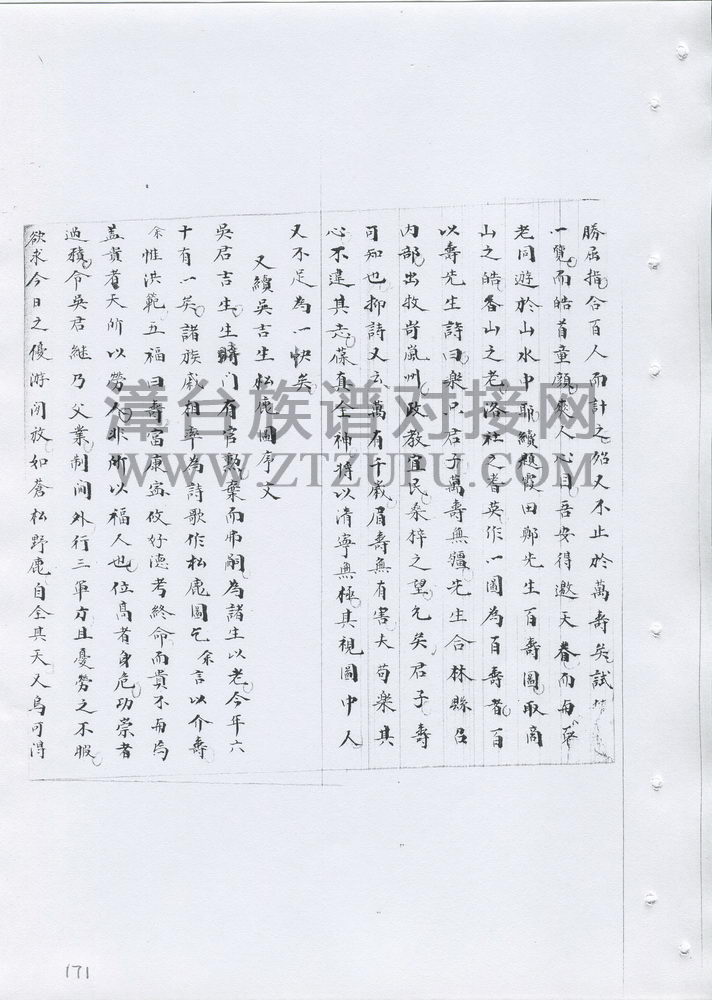 勝屈指合百人而計之殆又不止於萬壽矣試
一覽而皓首童顏來人心目吾安得邀天眷而與群
老同遊於山水中耶續題霞田鄭先生百壽圖取商
山之皓香山之老洛社之耆英作一圖為百壽者百
以壽先生詩曰樂只君子萬壽無疆先生合林縣呂
內部出牧岢嵐州政教宜民桑梓之望允矣君子壽
可知也抑詩又云萬有千歲眉壽無有害夫苟樂其
心不違其志葆真全神將以清寧無極其視圖中人
又不足為一快矣
又續吳吉生松鹿圖序文
吳君吉生生 門有官勳棄而弗嗣為諸生以老今年六
十有一矣諸族戚相率為詩歌作松鹿圖乞余言以介壽
余惟洪範五福曰壽富康寧攸好德考終命而貴不與焉
蓋貴者天所以勞人非所以福人也位高者身危功崇者
過積令吳君繼乃父業制閫外行三軍方且憂勞之不暇
欲求今日之優游閒放如蒼松野鹿自全其天又烏可得
漳台族谱对接网
WWW.ZTZUPU.COM
171